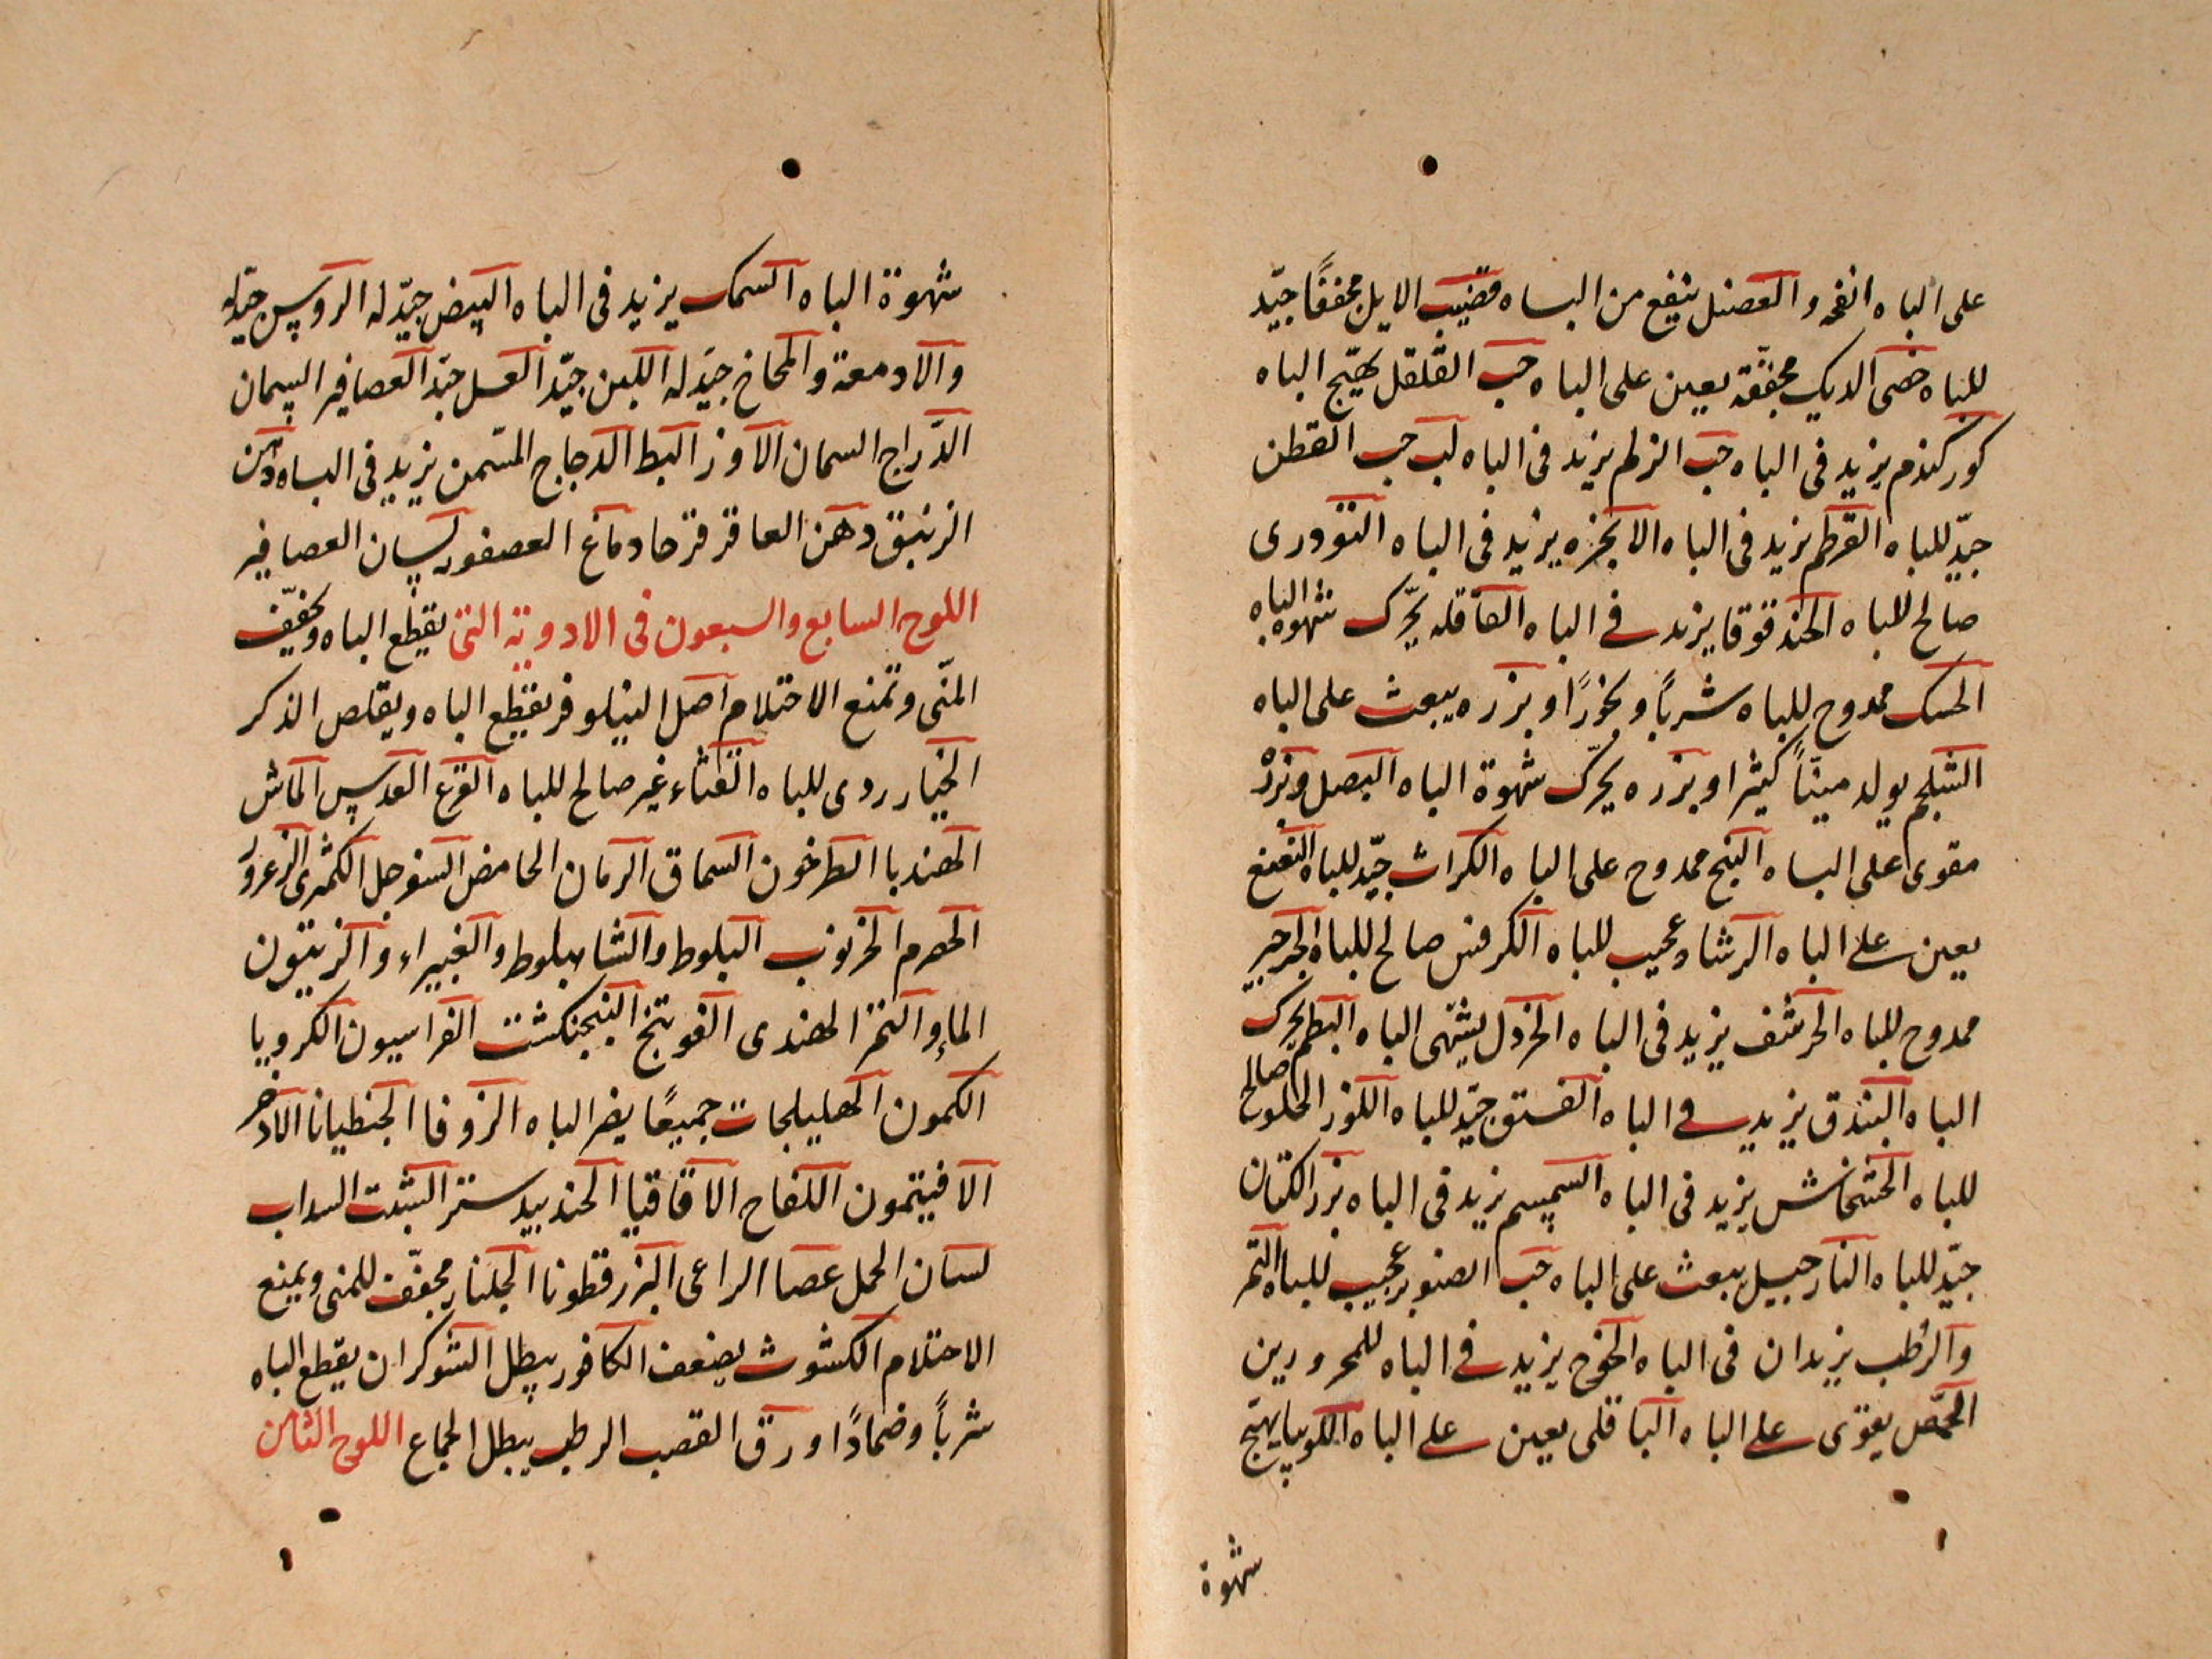 على الباه انفحه والعضل ينفع من الباه قضيب الايل مجففًا جيّد
للباه خصى الديك مجففّة يعين على الباه حب القلقل يهيّج الباه
كوركندم يزيد فى الباه حب الزلم يزيد فى الباه لب حب القطن
جيّد للباه القرطم يزيد فى الباه الانجزه يزيد فى الباه التودرى
صالح للباه الحندقوقا يزيد فى الباه القاقله يحّرك شهوه الباه
الحسك ممدوح للباه شربًا وبخورًا وبزره يبعث على الباه
الشلجم يولد مينّاً كثيرا وبزره يحرّك شهوة الباه البصل وبزره
مقوى على الباه البنج ممدوح على الباه الكراث جيّد للباه النعنع
يعين على الباه الرشاد عجيب للباه الكرفس صالح للباه الجرجير
ممدوح للباه الحرشف يزيد فى الباه الخردل يشتهى الباه البطم يحرك
الباه البندق يزيد فى الباه الفستق جيّد للباه اللوز الحلو صالح
للباه الخشخاش يزيد فى الباه السمسم يزيد فى الباه بزر الكتان
جيّد للباه النارجيل يبعث على الباه حب الصنوبر عجيب للباه التمر
والرطب يزيدان فى الباه الخوخ يزيد فى الباه للمحرورين
الحمّص يقوّى على الباه الباقلى يعين على الباه اللوبيا يهيّج
شهوة
شهوة الباه السمك يزيد فى الباه البيض جيّد له الروس جيّد له
والادمعة والمخاخ جيّد له اللبن جيّد العسل جيّد العصافير السمان
الدّراج السمان الاوز البط الدجاج المسّمن يزيد فى الباه دهن
الزنبق دهن العاقرقرحا دماغ العصفور لسان العصافير
اللوح السابع والسبعون فى الادوية التى يقطع الباه ويخفّف
المنّى وتمنع الاحتلام اصل النيلوفر يقطع الباه ويقلص الذكر
الخيار ردى للباه القثاء غير صالح للباه القرع العدس الماش
الهندبا الطرخون السماق الرمان الحامض السفرجل الكمثرى الزعرور
الحصرم الخرنوب البلوط والشاهبلوط والغبيراء والزيتون
الماء والتمر الهندى الفوتنج البنجنكشت الفراسيون الكرويا
الكمون الهليلجات جميعًا يضر الباه الزوفا الجنطيانا الاذخر
الافيتمون اللفاح الاقاقيا الجندبيدستر الشبت السداب
لسان الحمل عصا الراعى البزرقطونا الجلنار مجفّف للمنى ويمنع
الاحتلام الكشوث يضعف الكافور يبطل الشوكران يقطع الباه
شربًا وضمادًا ورق القصب الرطب يبطل الجماع اللوح الثامن